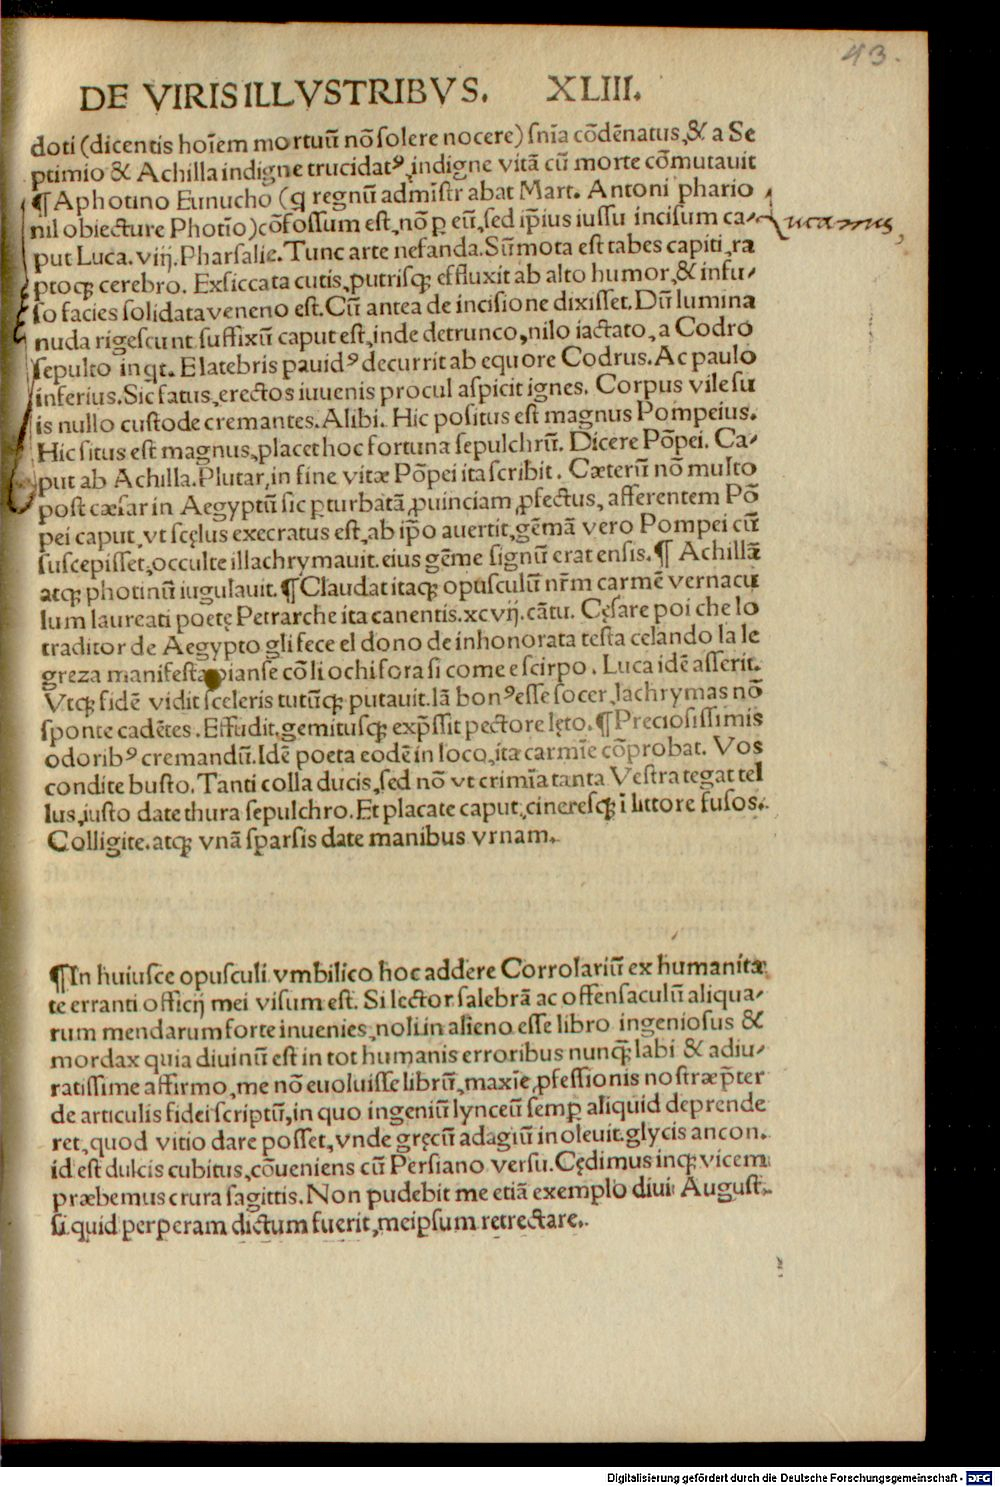 43.
DE VIRIS ILLVSTRIBVS. XLIII.
doti (dicentis hoīem mortuū nō solere nocere) snīa cōdēnatus, & a Se
ptimio & Achilla indigne trucidatꝰ, indigne vitā cū morte cōmutauit
¶ Aphotino Eunucho (q regnū admīstrabat Mart. Antoni phario
nil obiecture Photīo) cōfossum est, nō p̱ eū, sed ip̄ius iussu incisum ca- Lucanus,
put Luca. viij. Pharsalie. Tunc arte nefanda. Sūmota est tabes capiti, ra
ptoqꝫ cerebro. Exsiccata cutis, putrisqꝫ effluxit ab alto humor, & infu-
so facies solidata veneno est. Cū antea de incisione dixisset. Dū lumina
nuda rigescunt suffixū caput est, inde detrunco, nilo iactato, a Codro
sepulto inqt. E latebris pauidꝰ decurrit ab equore Codrus. Ac paulo
inferius. Sic fatus, erectos iuuenis procul aspicit ignes. Corpus vile su
is nullo custode cremantes. Alibi. Hic positus est magnus Pompeius.
Hic situs est magnus, placet hoc fortuna sepulchrū. Dicere Pōpei. Ca-
put ab Achilla. Plutar, in fine vitæ Pōpei ita scribit. Cæterū nō multo
post cæsar in Aegyptū sic ꝑturbatā ꝓuinciam ꝓfectus, afferentem Pō
pei caput, vt scęlus execratus est, ab ip̄o auertit, gēmā vero Pompei cū
suscepisset, occulte illachrymauit. eius gēme signū erat ensis. ¶ Achillā
atqꝫ photinū iugulauit. ¶ Claudat itaqꝫ opusculū nr̄m carmē vernacu
lum laureati poetę Petrarche ita canentis. xcvij. cātu. Cęsare poi che lo
traditor de Aegypto gli fece el dono de inhonorata testa celando la le
greza manifesta pianse cō li ochi fora si come e scirpo. Luca idē asserit.
Vtqꝫ fidē vidit sceleris tutūqꝫ putauit. Iā bonꝰ esse socer, lachrymas nō
sponte cadētes. Effudit, gemitusqꝫ exp̄ssit pectore lęto. ¶ Preciosissimis
odoribꝰ cremandū. Idē poeta eodē in loco, ita carmīe cōprobat. Vos
condite busto. Tanti colla ducis, sed nō vt crimīa tanta Vestra tegat tel
lus, iusto date thura sepulchro. Et placate caput, cineresqꝫ ī littore fusos.
Colligite. atqꝫ vnā sparsis date manibus vrnam.
¶ In huiusce opusculi vmbilico hoc addere Corrolariū ex humanita
te erranti officij mei visum est. Si lector salebrā ac offensaculū aliqua-
rum mendarum forte inuenies, noli in alieno esse libro ingeniosus &
mordax quia diuinū est in tot humanis erroribus nunqꝫ labi & adiu-
ratissime affirmo, me nō euoluisse librū, maxīe ꝓfessionis nostræ p̄ter
de articulis fidei scriptū, in quo ingeniū lynceū semp̱ aliquid deprende
ret, quod vitio dare posset, vnde gręcū adagiū inoleuit. glycis ancon.
id est dulcis cubitus, cōueniens cū Persiano versu. Cędimus inqꝫ vicem
præbemus crura sagittis. Non pudebit me etiā exemplo diui August.
si quid perperam dictum fuerit, meipsum retrectare.
Digitalisierung gefördert durch die Deutsche Forschungsgemeinschaft - DFG